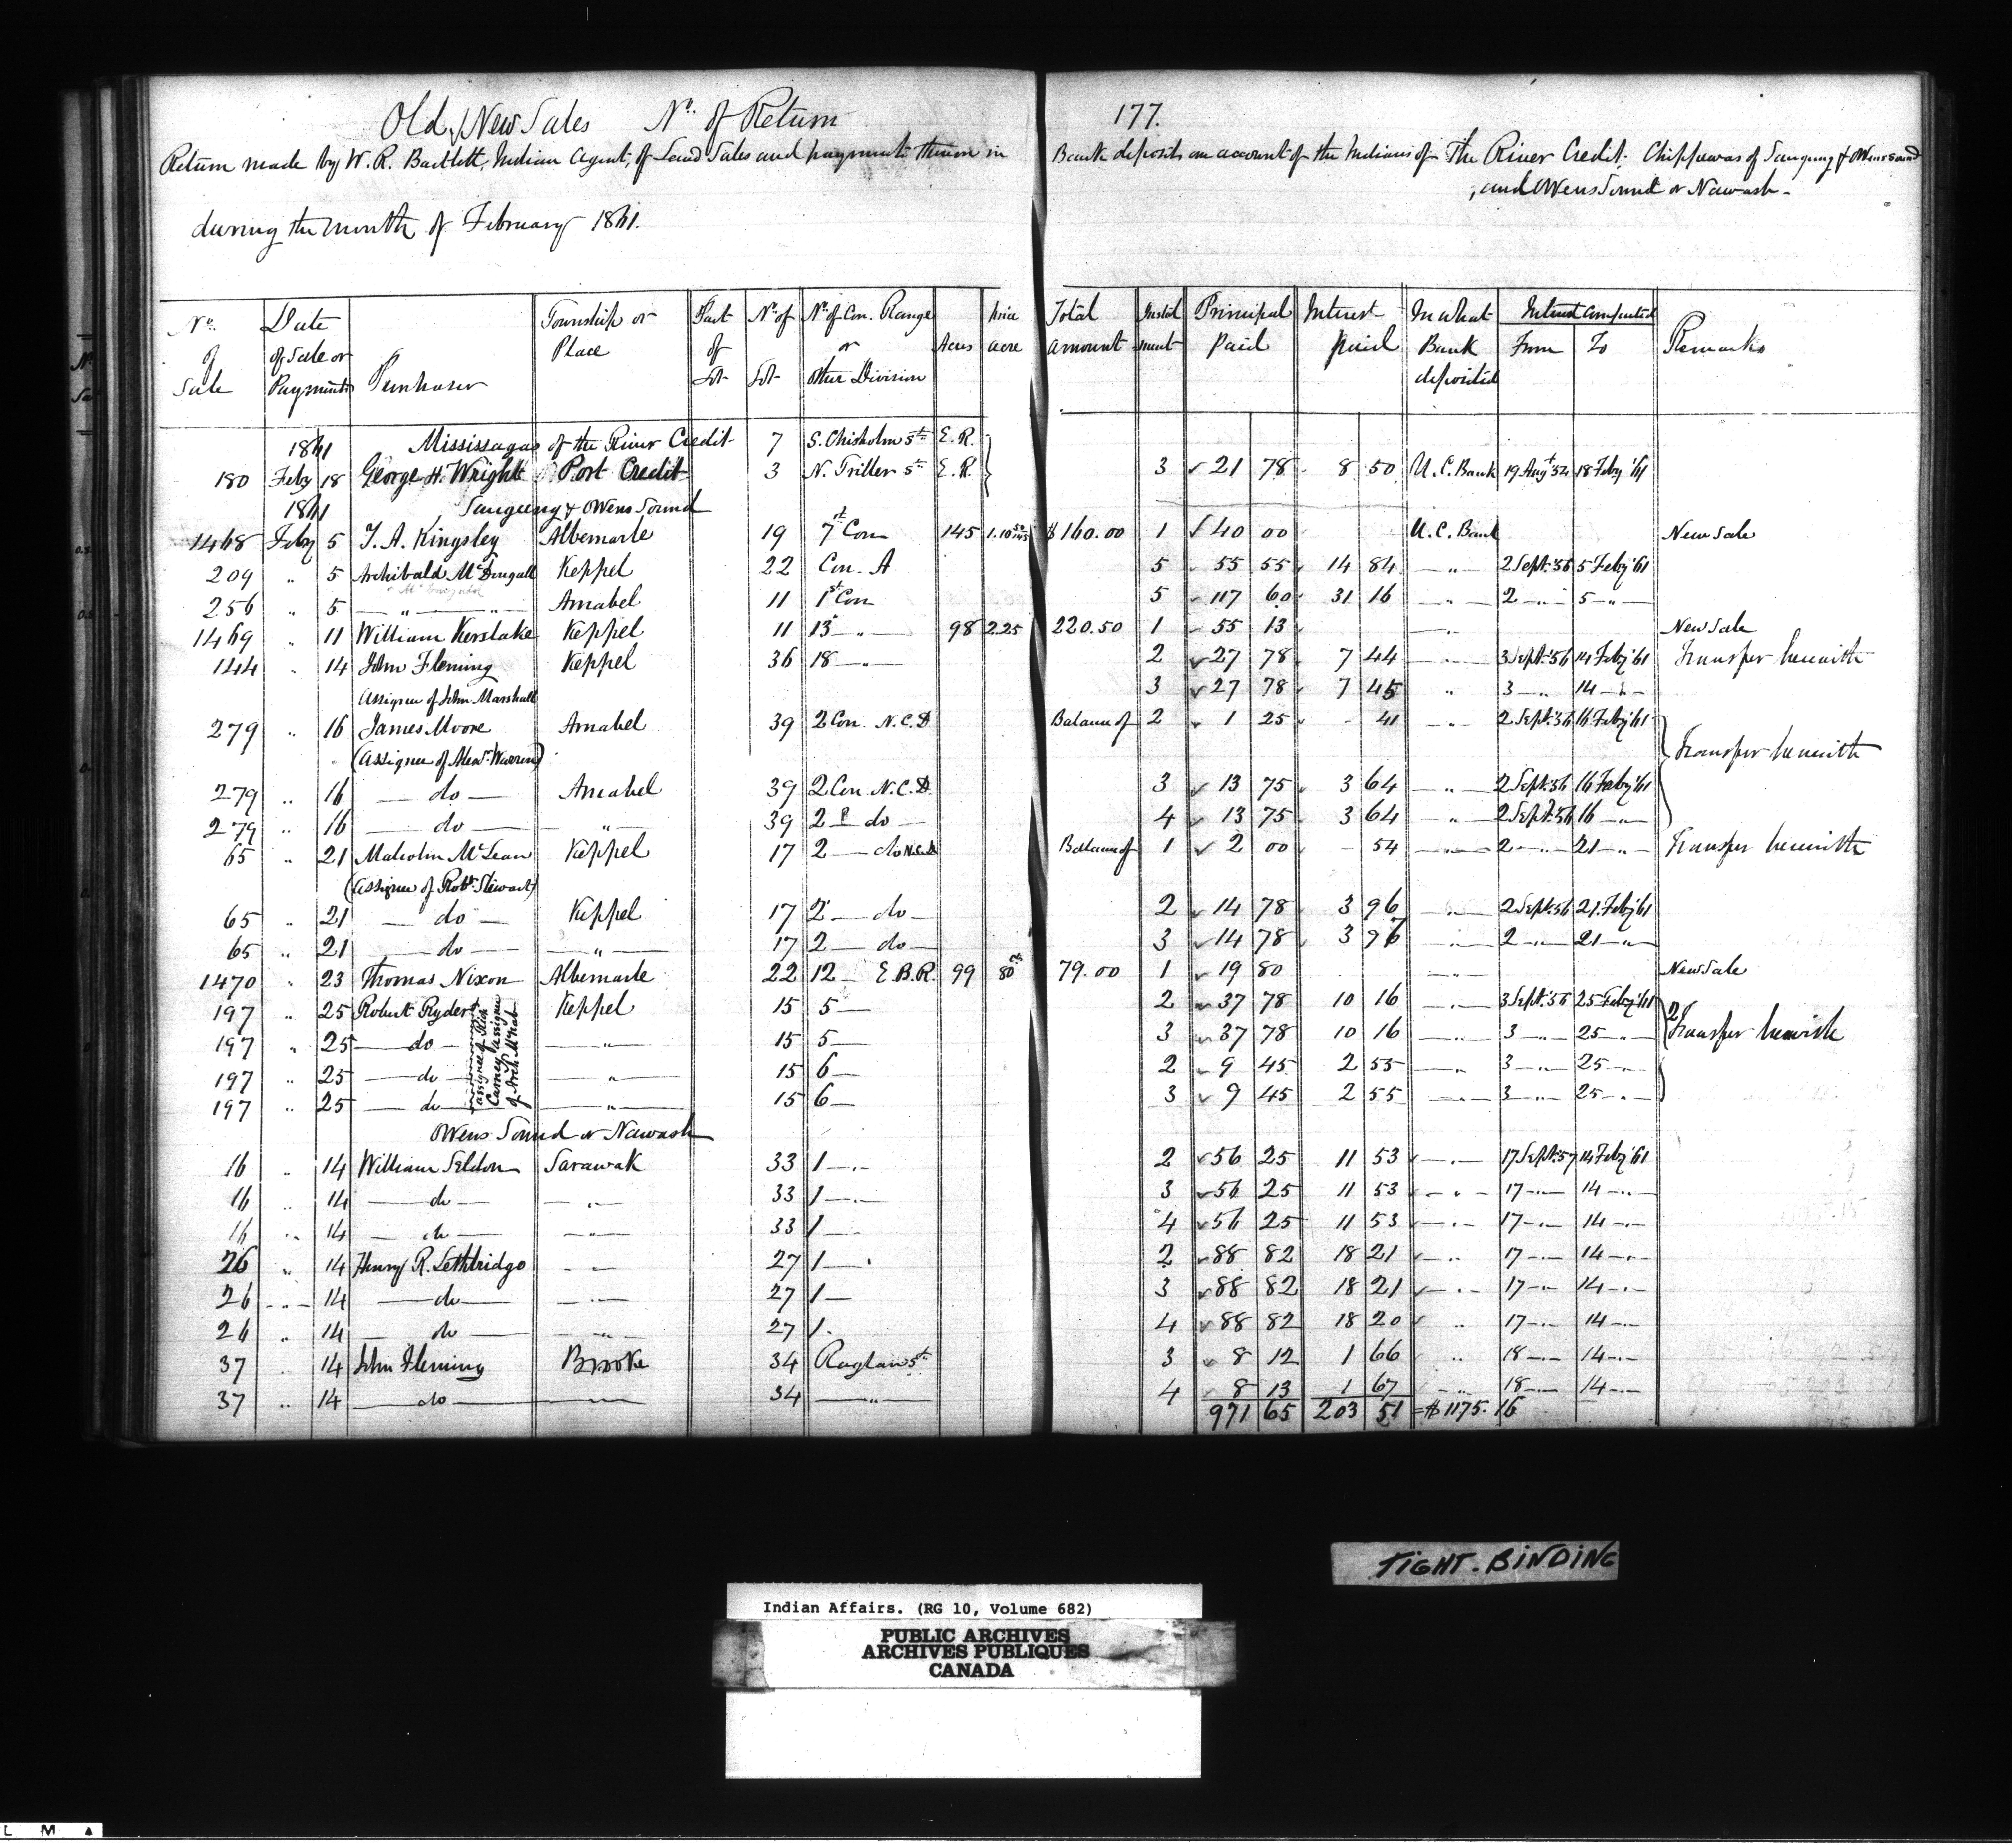 Old & New Sales No. of Return 177.
Return made by W. R. Bartlett, Indian Agent, of Land Sales and payments thereon in Bank deposits on account of the Indians of The River Credit. Chippewas of Saugeeng & Owens Sound
, and Owens Sound or Nawash -
during the month of February 1861.
No. of Sale Date of Sale or Payment Purchaser Township or Place Part of Lot No. of Lot No. of Con. Range or other Division Acres Price acre Total amount Instalment Principal Paid Interest paid In what Bank deposited Interest Computed From To Remarks
1861 Mississagas of the River Credit 7 S. Chisholm St. E. R.
180 Feby 18 George H. Wright Port Credit 3 N. Triller St. E. R. 3 21 78 8 50 U. C. Bank 19 Augt 54 18 Feby '61
1861 Saugeeng & Owens Sound
1468 Feby 5 T. A. Kingsley Albemarle 19 7 Con 145 1.10 50/145 $160.00 1 40 00 U. C. Bank New Sale
209 " 5 Archibald McDougall Keppel 22 Con. A 5 55 55 14 84 " 2 Sept. '56 5 Feby '61
256 " 5 " " Amabel 11 1st Con 5 117 60 31 16 " 2 " 5 "
1469 " 11 William Kerslake Keppel 11 13 " 98 2.25 220.50 1 55 13 " New Sale
144 " 14 John Fleming Keppel 36 18 " 2 27 78 7 44 " 3 Sept. '56 14 Feby '61 Transfer herewith
Assignee of John Marshall 3 27 78 7 45 " 3 " 14 "
279 " 16 James Moore Amabel 39 2 Con. N.C.D Balance of 2 1 25 - 41 " 2 Sept. '56 16 Feby '61
(Assignee of Alexr. Warren) Transfer herewith
279 " 16 do Amabel 39 2 Con. N.C.D. 3 13 75 3 64 " 2 Sept. 56 16 Feby '61
279 " 16 do " 39 2 do 4 13 75 3 64 " 2 Sept. 56 16 "
65 " 21 Malcolm McLean Keppel 17 2 do N.C.D Balance of 1 2 00 - 54 " 2 " 21 " Transfer herewith
(Assignee of Robt. Stewart)
65 " 21 do Keppel 17 2 do 2 14 78 3 96 " 2 Sept. 56 21 Feby '61
65 " 21 do " 17 2 do 3 14 78 3 97 " 2 " 21 "
1470 " 23 Thomas Nixon Albemarle 22 12 E.B.R. 99 80 79.00 1 19 80 " New Sale
197 " 25 Robert Ryder Keppel 15 5 2 37 78 10 16 " 3 Sept. '56 25 Feby '61
assignee of Rich Carney assignee of Arch McNab
197 " 25 do " 15 5 3 37 78 10 16 " 3 " 25 " 2 Transfer herewith
197 " 25 do " 15 6 2 9 45 2 55 " 3 " 25 "
197 " 25 do " 15 6 3 9 45 2 55 " 3 " 25 "
Owens Sound or Nawash
16 " 14 William Seldon Sarawak 33 1 " 2 56 25 11 53 " 17 Sept. 57 14 Feby '61
16 " 14 do " 33 1 " 3 56 25 11 53 " 17 " 14 "
16 " 14 do " 33 1 " 4 56 25 11 53 " 17 " 14 "
26 " 14 Henry R. Lethbridge " 27 1 " 2 88 82 18 21 " 17 " 14 "
26 " 14 do " 27 1 3 88 82 18 21 " 17 " 14 "
26 " 14 do " 27 1 4 88 82 18 20 " 17 " 14 "
37 " 14 John Fleming Brooke 34 Raglan St. 3 8 12 1 66 " 18 " 14 "
37 " 14 do " 34 " 4 8 13 1 67 " 18 " 14 "
971 65 203 51 = $1175.16
TIGHT. BINDING
Indian Affairs. (RG 10, Volume 682)
PUBLIC ARCHIVES
ARCHIVES PUBLIQUES
CANADA
L M